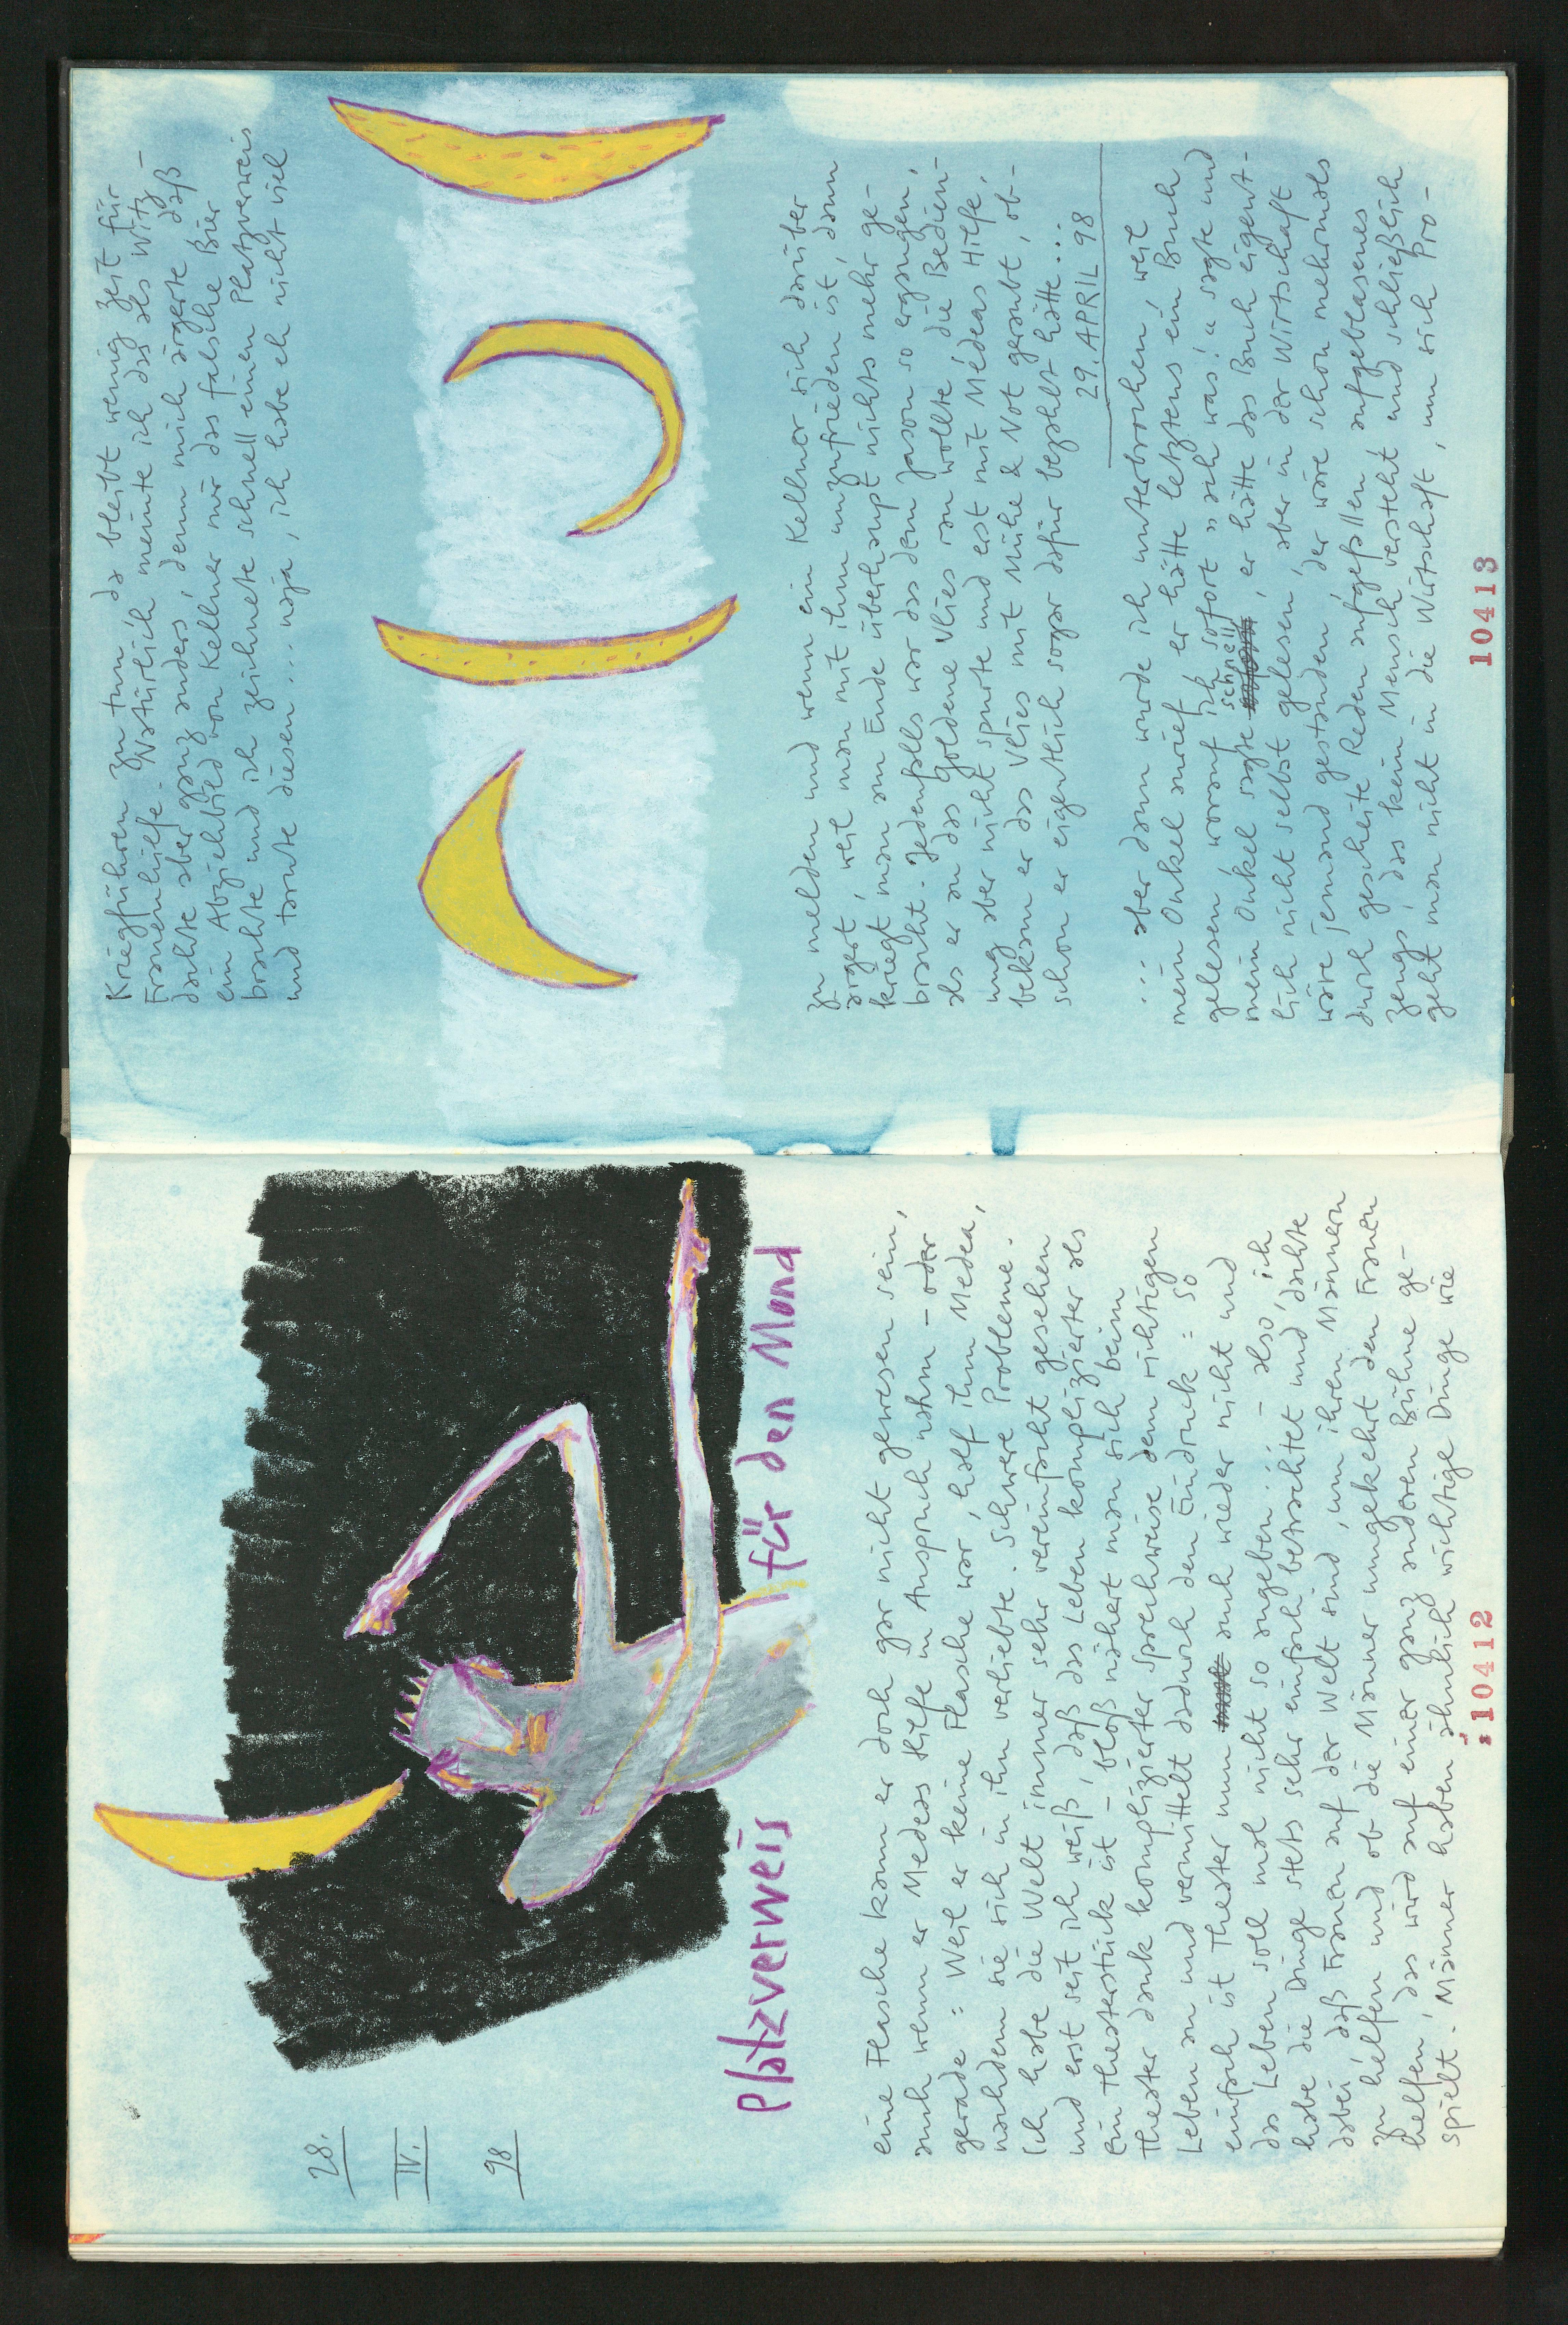 28.
IV.
98
Platzverweis für den Mond
eine Flasche kann er doch gar nicht gewesen sein,
auch wenn er Medeas Hilfe in Anspruch nahm – oder
gerade: Weil er keine Flasche war, half ihm Medea,
nachdem sie sich in ihn verliebte. Schwere Probleme.
Ich habe die Welt immer sehr vereinfacht gesehen
und erst seit ich weiß, daß das Leben komplizierter als
ein Theaterstück ist – bloß nähert man sich beim
Theater dank komplizierter Sprechweise dem richtigen
Leben an und vermittelt dadurch den Eindruck: so
einfach ist Theater nun auch wieder nicht und
das Leben soll mal nicht so angeben! – also, ich
habe die Dinge stets sehr einfach betrachtet und dachte
dabei, daß Frauen auf der Welt sind, um ihren Männern
zu helfen und ob die Männer umgekehrt den Frauen
helfen, das wird auf einer ganz anderen Bühne ge-
spielt. Männer haben ähnlich wichtige Dinge wie
:10412
Kriegführen zu tun, da bleibt wenig Zeit für
Frauenhilfe. Natürlich meinte ich das als Witz,
dachte aber ganz anders, denn mich ärgerte, daß
ein Abziehbild von Kellner mir das falsche Bier
brachte und ich zeichnete schnell einen Platzverweis
und tarnte diesen ... naja, ich habe eh nicht viel
zu melden und wenn ein Kellner sich darüber
ärgert, weil man mit ihm unzufrieden ist, dann
kriegt man am Ende überhaupt nichts mehr ge-
bracht. Jedenfalls war das dem Jason so ergangen,
als er an das Goldene Vlies ran wollte, die Bedien-
ung aber nicht spurte und erst mit Médeas Hilfe,
bekam er das Vlies mit Mühe & Not geraubt, ob-
schon er eigentlich sogar dafür bezahlt hätte ...
29. APRIL 98
... aber dann wurde ich unterbrochen, weil
mein Onkel anrief, er hätte letztens ein Buch
gelesen, worauf ich sofort „ach was!" sagte und
mein Onkel sagte schnell, er hätte das Buch eigent-
lich nicht selbst gelesen, aber in der Wirtschaft
wäre jemand gestanden, der wäre schon mehrmals
durch gescheite Reden aufgefallen, aufgeblasenes
Zeugs, das kein Mensch versteht und schließlich
geht man nicht in die Wirtschaft, um sich Pro-
10413